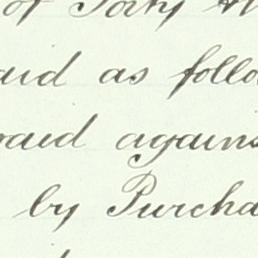 of Forty
aid as follo
raid against
by Purcha